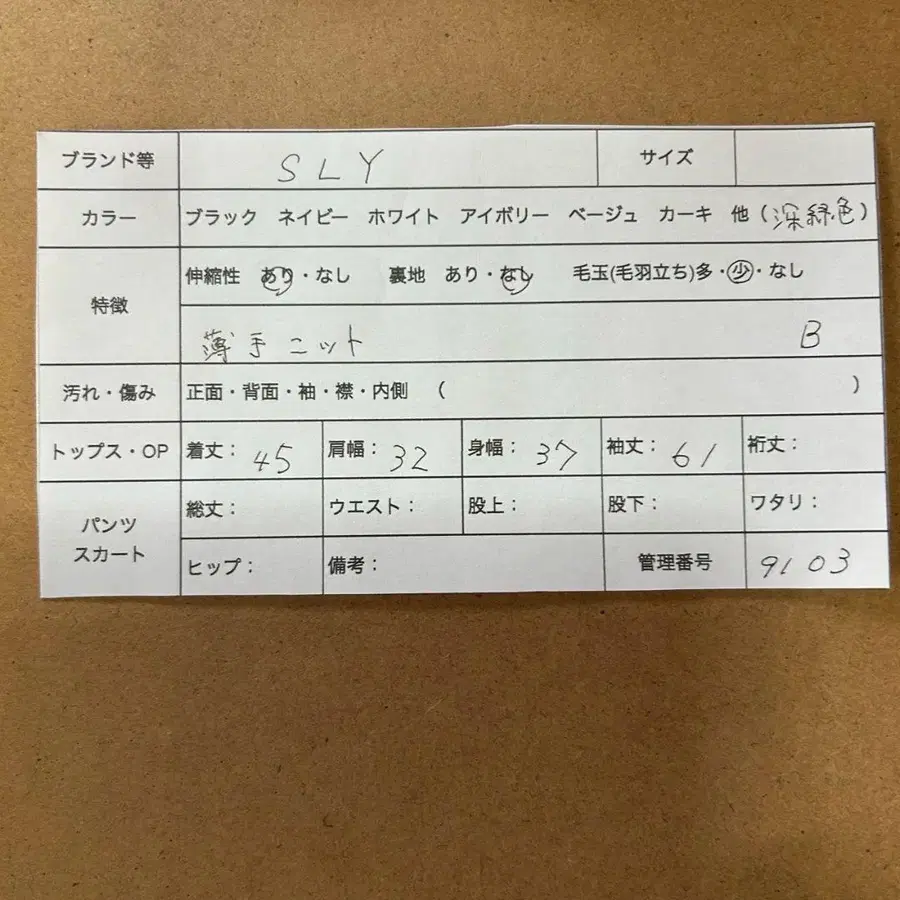 ブランド等 SLY サイズ
カラー ブラック ネイビー ホワイト アイボリー ベージュ カーキ 他(深緑色)
特徴 伸縮性 あり・なし 裏地 あり・なし 毛玉(毛羽立ち)多・少・なし
薄手ニット B
汚れ・傷み 正面・背面・袖・襟・内側 ( )
トップス・OP 着丈: 45 肩幅: 32 身幅: 37 袖丈: 61 裄丈:
パンツ スカート 総丈: ウエスト: 股上: 股下: ワタリ:
ヒップ: 備考: 管理番号 9103